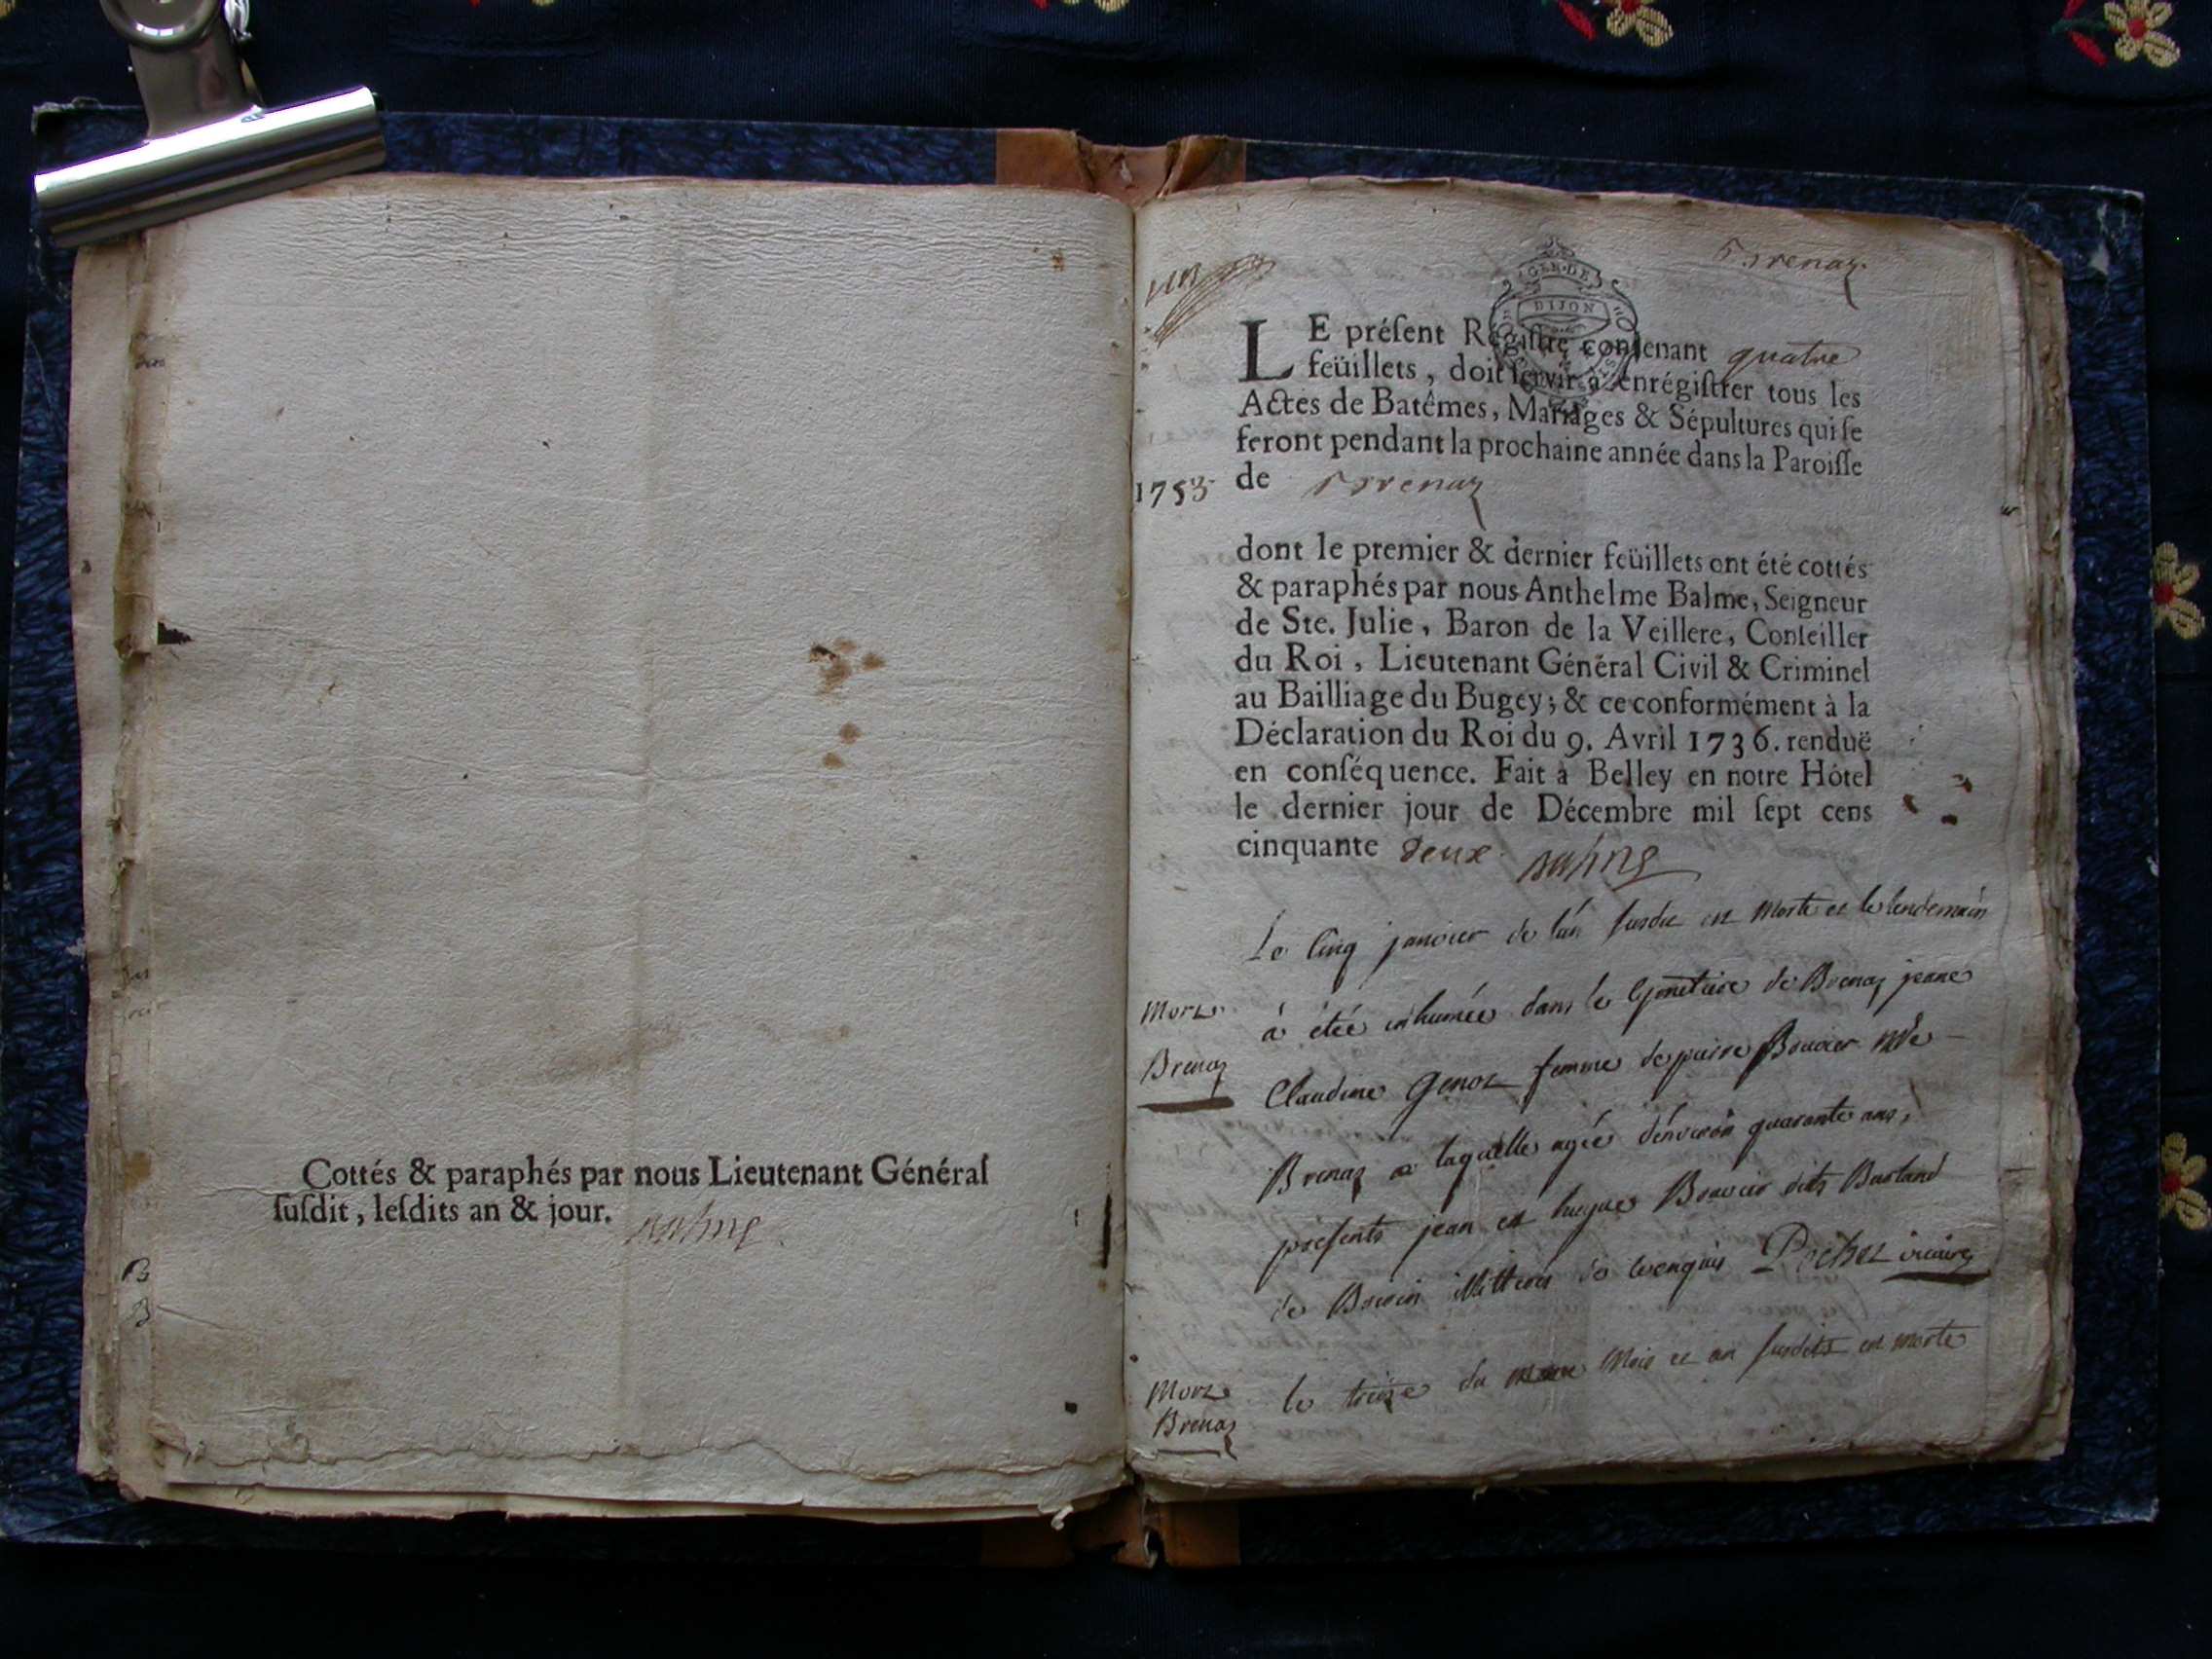 Cottés & paraphés par nous Lieutenant Général
ſuſdit, leſdits an & jour.
Balme
un
GEN. DE
DIJON
Brenaz
LE préſent Régiſtre contenant quatre
feüillets, doit ſervir à enrégiſtrer tous les
Actes de Batêmes, Mariages & Sépultures qui ſe
feront pendant la prochaine année dans la Paroiſſe
1753 de Brenaz
dont le premier & dernier feüillets ont été cottés
& paraphés par nous Anthelme Balme, Seigneur
de Ste. Julie, Baron de la Veillere, Conſeiller
du Roi, Lieutenant Général Civil & Criminel
au Bailliage du Bugey; & ce conformément à la
Déclaration du Roi du 9. Avril 1736. renduë
en conſéquence. Fait à Belley en notre Hôtel
le dernier jour de Décembre mil ſept cens
cinquante deux Balme
Le Cinq janvier de l'an susdit est Morte et le lendemain
Mort à étée inhumée dans le Cymetiere de Brenaz jeane
Brenaz Claudine Genot femme de pierre Bouvier
Brenaz laquelle agée d'environ quarante ans,
présents jean et hugue Bouvier dits
de Pochet vicaire
Mort le treize du Mois et an susdits est morte
Brenaz